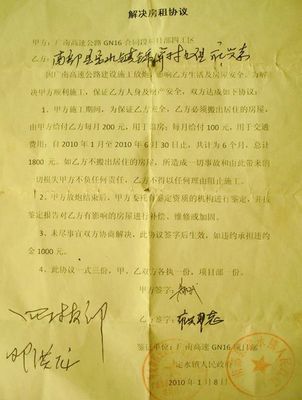 解决房租协议
甲方：广南高速公路 GN16 合同段项目部四工区
乙方：南部县定水镇
因广南高速公路建设施工放炮，影响乙方生活及房屋安全，为
甲方方便顺利施工，保证乙方人身及财产安全，双方达成如下协议：
1、甲方施工期间，为保证乙方安全，乙方必须搬出居住的房屋，
由甲方给付乙方每月 200 元，用于租房；每月给付 100 元，用于交通
费用；自 2010 年 1 月至 2010 年 6 月 30 日止，共计为 6 个月，总计
1800 元。如乙方不搬出居住的房屋，所造成一切事故和由此带来的
一切损失甲方不负任何责任，乙方不得以任何理由阻止施工。
2、甲方放炮结束后，甲方委托有鉴定资质的机构进行鉴定，并按
鉴定报告对乙方有影响的房屋进行补偿、维修或加固。
3、未尽事宜双方协商解决，此协议签字后生效，如违约承担违约
金 1000 元。
4、此协议一式三份，甲、乙双方各执一份，项目部一份。
甲方签字：
乙方签字：
鉴证单位：广南高速 GN16 项目部
定水镇人民政府
2010 年 1 月 8 日